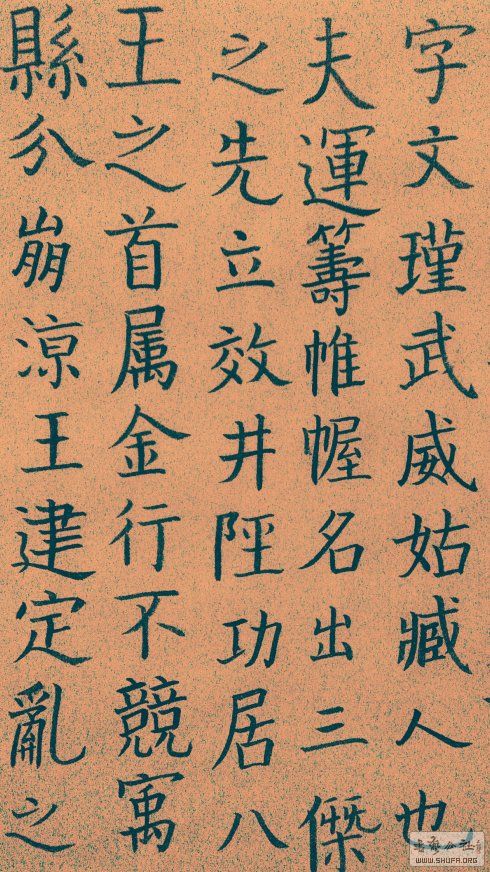 字文瑾武威姑臧人也
夫運籌帷幄名出三傑
之先立效井陘功居八
王之首属金行不競寓
縣分崩涼王建定亂之
WWW.SHUFA.ORG